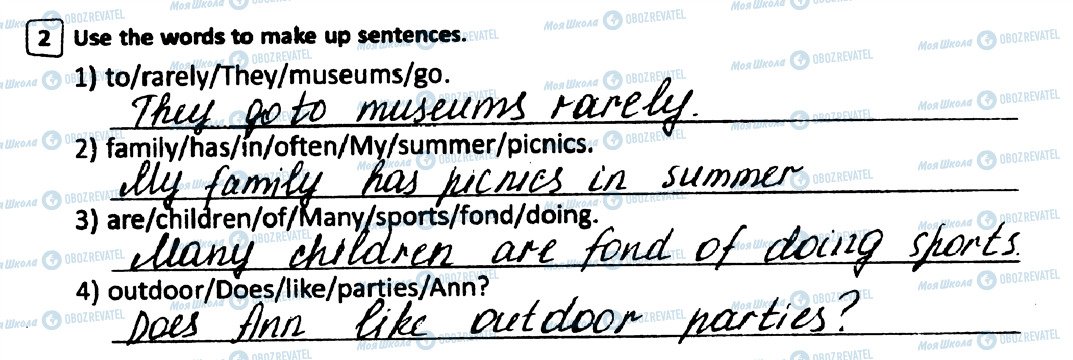 2 Use the words to make up sentences.
1) to/rarely/They/museums/go.
They go to museums rarely.
2) family/has/in/often/My/summer/picnics.
My family has picnics in summer
3) are/children/of/Many/sports/fond/doing.
Many children are fond of doing sports.
4) outdoor/Does/like/parties/Ann?
Does Ann like outdoor parties?
МояШкола OBOZREVATEL